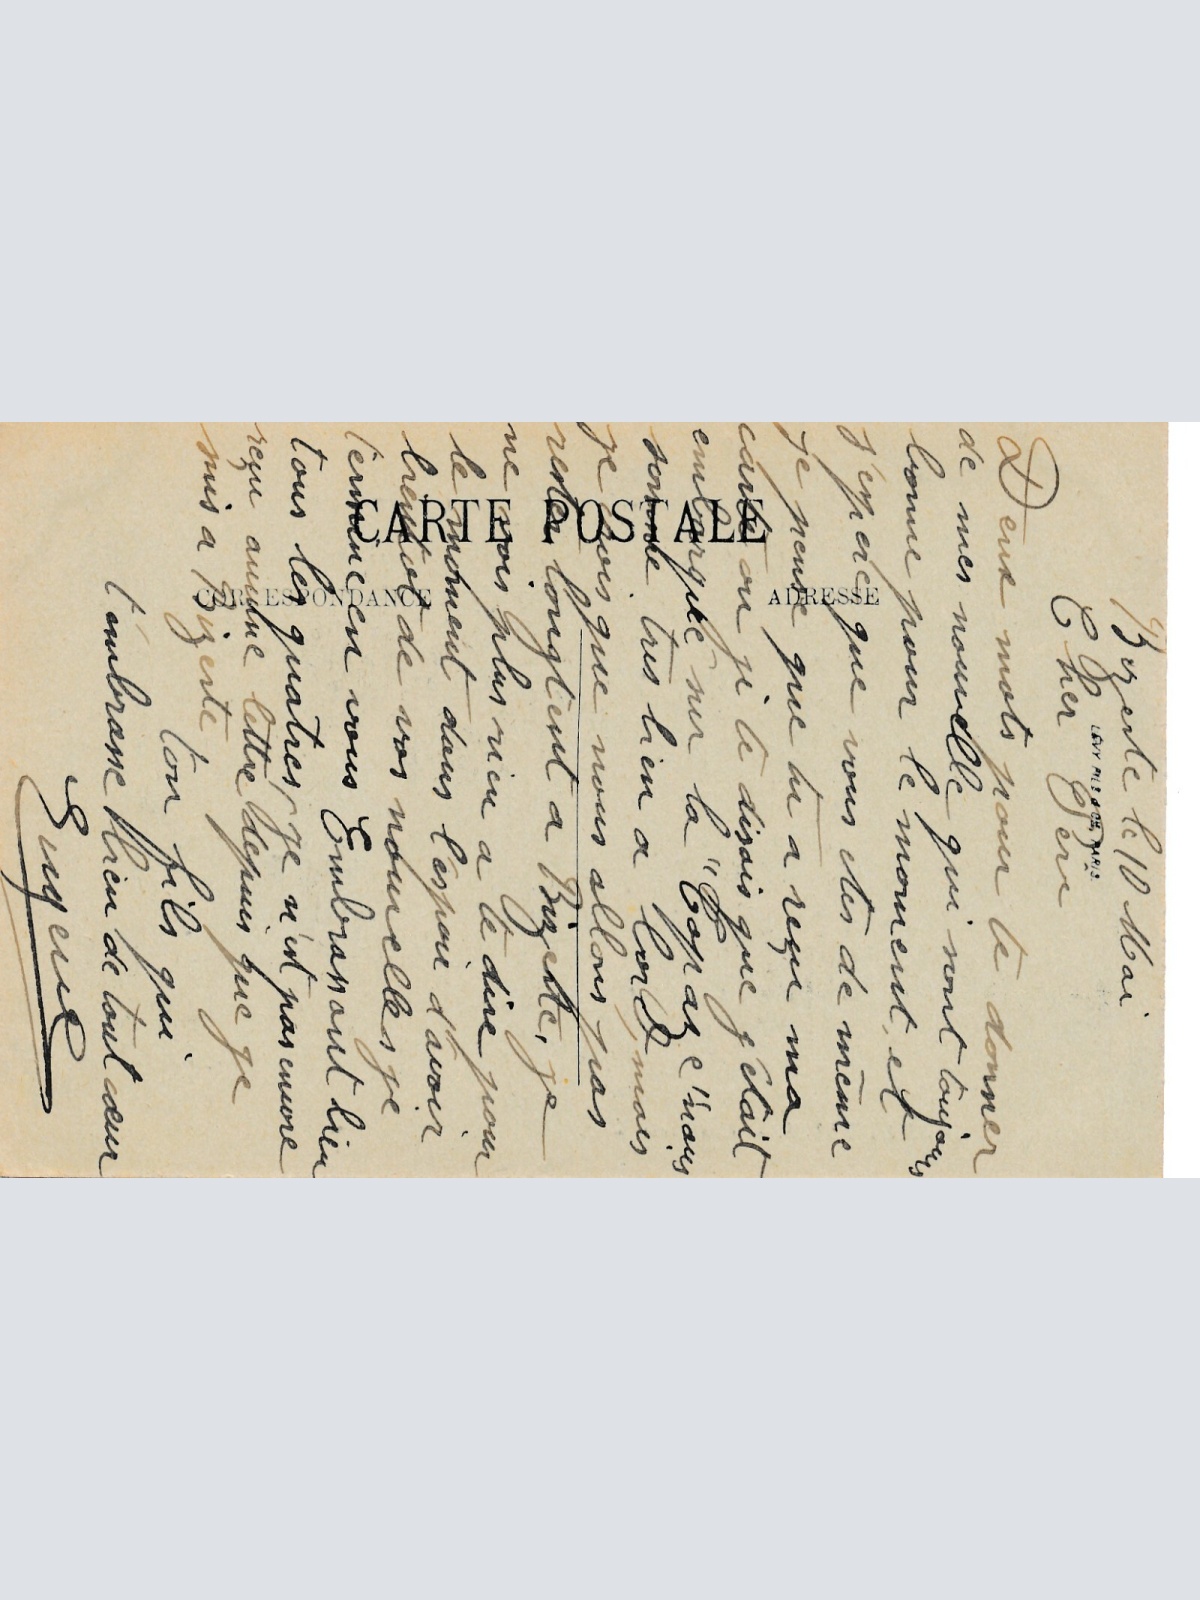 CARTE POSTALE
CORRESPONDANCE
ADRESSE
Bizerte le 10 Mai
Cher Père
Deux mots pour te donner
de mes nouvelle qui sont toujours
bonne pour le moment, et
j'espère que vous etes de même
je pense que tu a reçu ma
carte ou je te disais que j'était
embarqué sur la "Topaze" nous
somme tres bien a bord, mais
je crois que nous allons pas
rester longtemt a Bizerte, je
ne vois plus rien a te dire pour
le moment dans l'espoir d'avoir
bientot de vos nouvelles je
termine en vous Embrassant bien
tous les quatres, je n'est pas encore
reçu aucune lettre depuis que je
suis a Bizerte
ton fils qui
t'embrasse bien de tout cœur
Eugene